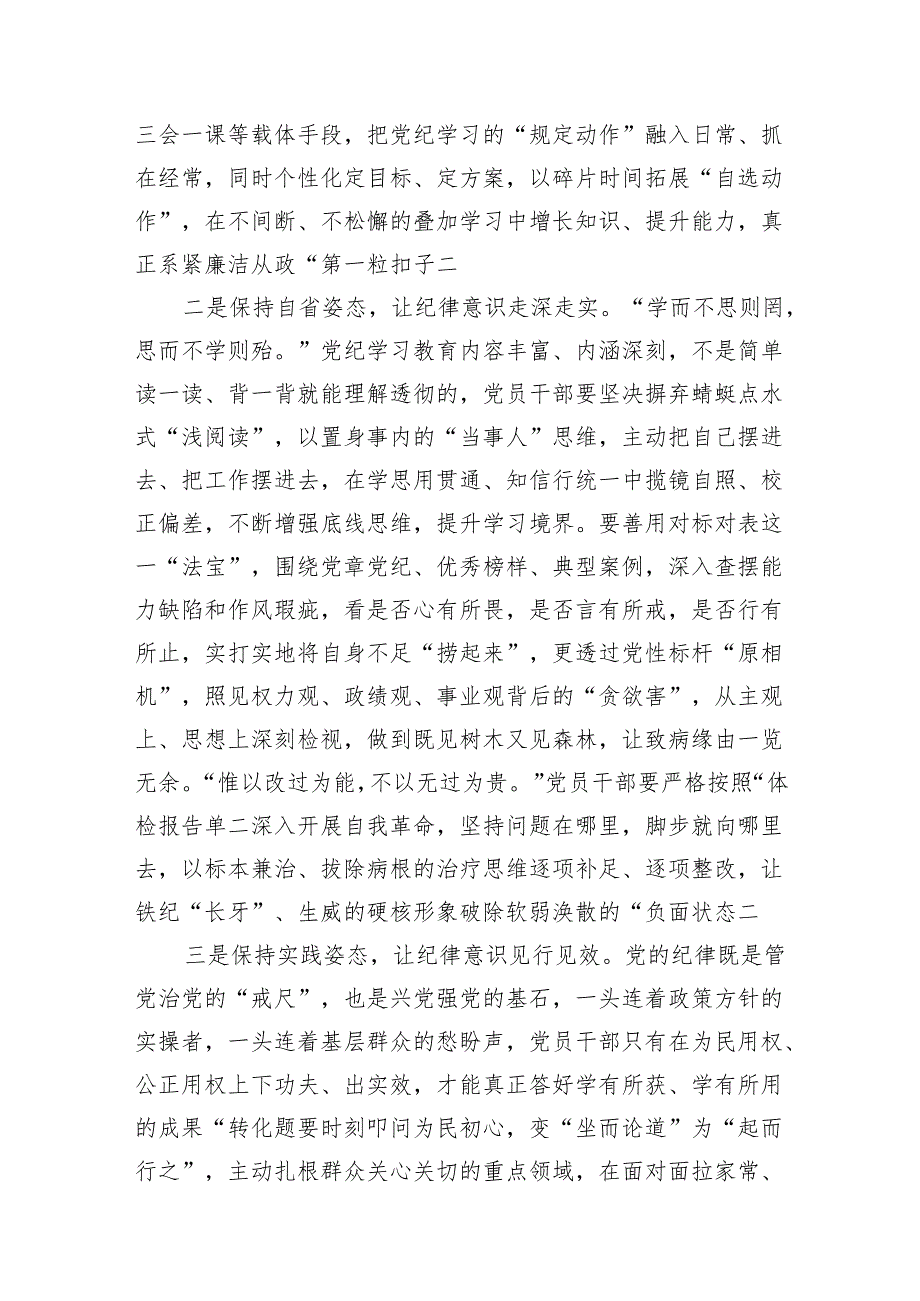 三会一课等载体手段，把党纪学习的“规定动作”融入日常、抓
在经常，同时个性化定目标、定方案，以碎片时间拓展“自选动
作”，在不间断、不松懈的叠加学习中增长知识、提升能力，真
正系紧廉洁从政“第一粒扣子二
二是保持自省姿态，让纪律意识走深走实。“学而不思则罔，
思而不学则殆。”党纪学习教育内容丰富、内涵深刻，不是简单
读一读、背一背就能理解透彻的，党员干部要坚决摒弃蜻蜓点水
式“浅阅读”，以置身事内的“当事人”思维，主动把自己摆进
去、把工作摆进去，在学思用贯通、知信行统一中揽镜自照、校
正偏差，不断增强底线思维，提升学习境界。要善用对标对表这
一“法宝”，围绕党章党纪、优秀榜样、典型案例，深入查摆能
力缺陷和作风瑕疵，看是否心有所畏，是否言有所戒，是否行有
所止，实打实地将自身不足“捞起来”，更透过党性标杆“原相
机”，照见权力观、政绩观、事业观背后的“贪欲害”，从主观
上、思想上深刻检视，做到既见树木又见森林，让致病缘由一览
无余。“惟以改过为能，不以无过为贵。”党员干部要严格按照“体
检报告单二深入开展自我革命，坚持问题在哪里，脚步就向哪里
去，以标本兼治、拔除病根的治疗思维逐项补足、逐项整改，让
铁纪“长牙”、生威的硬核形象破除软弱涣散的“负面状态二
三是保持实践姿态，让纪律意识见行见效。党的纪律既是管
党治党的“戒尺”，也是兴党强党的基石，一头连着政策方针的
实操者，一头连着基层群众的愁盼声，党员干部只有在为民用权、
公正用权上下功夫、出实效，才能真正答好学有所获、学有所用
的成果“转化题要时刻叩问为民初心，变“坐而论道”为“起而
行之”，主动扎根群众关心关切的重点领域，在面对面拉家常、